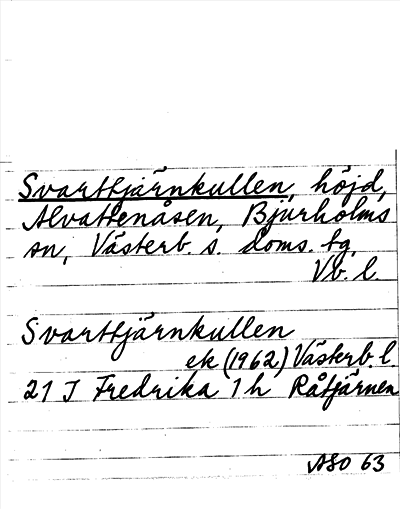 Svarttjärnkullen, höjd,
Alvattenåsen, Bjurholms
sn, Västerb. s. doms. tg,
Vb. l.
Svarttjärnkullen
ek (1962) Västerb. l.
21 J Fredrika 1 h Råtjärnen
ASO 63